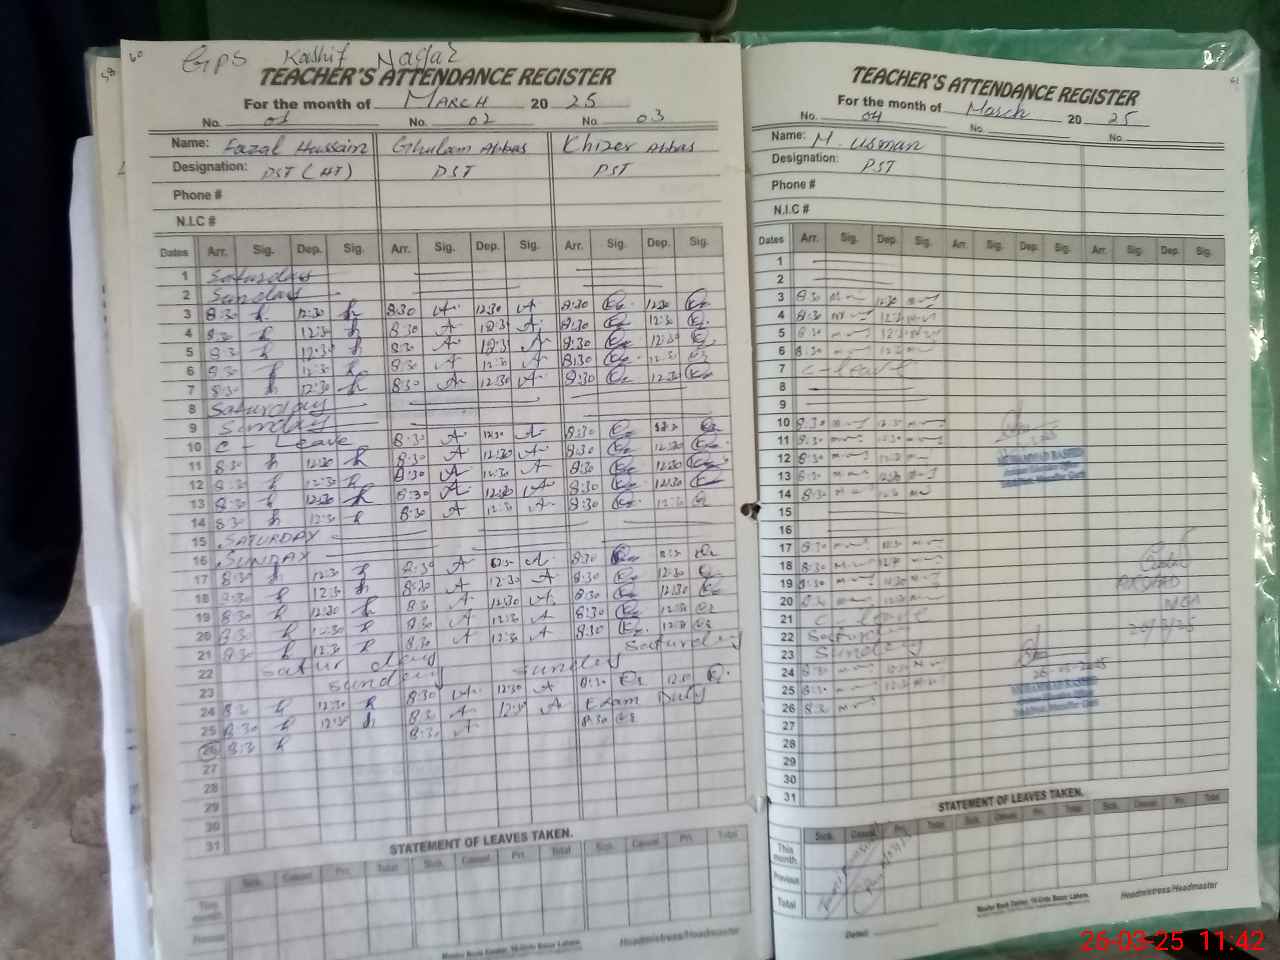 GPS Kashif Nagar
TEACHER'S ATTENDANCE REGISTER
For the month of MARCH 20 25
No. 01 No. 02 No. 03
Name: Fazal Hussain Ghulam Abbas Khizer Abbas
Designation: PST (HT) PST PST
Phone #
N.I.C #
Dates Arr. Sig. Dep. Sig. Arr. Sig. Dep. Sig. Arr. Sig. Dep. Sig.
1 Saturday
2 Sunday
3 8:30 12:30 8:30 12:30 8:30 12:30
4 8:30 12:30 8:30 12:30 8:30 12:30
5 8:30 12:30 8:30 12:30 8:30 12:30
6 8:30 12:30 8:30 12:30 8:30 12:30
7 8:30 12:30 8:30 12:30 8:30 12:30
8 Saturday
9 Sunday
10 C - Leave 8:30 12:30 8:30 12:30
11 8:30 12:30 8:30 12:30 8:30 12:30
12 8:30 12:30 8:30 12:30 8:30 12:30
13 8:30 12:30 8:30 12:30 8:30 12:30
14 8:30 12:30 8:30 12:30 8:30 12:30
15 SATURDAY
16 SUNDAY
17 8:30 12:30 8:30 12:30 8:30 12:30
18 8:30 12:30 8:30 12:30 8:30 12:30
19 8:30 12:30 8:30 12:30 8:30 12:30
20 8:30 12:30 8:30 12:30 8:30 12:30
21 8:30 12:30 8:30 12:30 8:30 12:30
22 Saturday Saturday
23 Sunday Sunday
24 8:30 12:30 8:30 12:30 8:30 12:30
25 8:30 12:30 8:30 12:30 Exam Duty
26 8:30 8:30 8:30
27
28
29
30
31
STATEMENT OF LEAVES TAKEN.
Sick. Casual Pri. Total Sick. Casual Pri. Total Sick. Casual Pri. Total
This month.
Previous
Headmistress/Headmaster
TEACHER'S ATTENDANCE REGISTER
For the month of March 20 25
No. 04 No. No.
Name: M. Usman
Designation: PST
Phone #
N.I.C #
Dates Arr. Sig. Dep. Sig. Arr. Sig. Dep. Sig. Arr. Sig. Dep. Sig.
1
2
3 8:30 12:30
4 8:30 12:30
5 8:30 12:30
6 8:30 12:30
7 C-leave
8
9
10 8:30 12:30
11 8:30 12:30
12 8:30 12:30
13 8:30 12:30
14 8:30 12:30
15
16
17 8:30 12:30
18 8:30 12:30
19 8:30 12:30
20 8:30 12:30
21 C-leave
22 Saturday
23 Sunday
24 8:30 12:30
25 8:30 12:30
26 8:30
27
28
29
30
31
STATEMENT OF LEAVES TAKEN.
Sick. Casual Pri. Total Sick. Casual Pri. Total Sick. Casual Pri. Total
This month.
Previous
Total
Headmistress/Headmaster
26-03-25 11:42